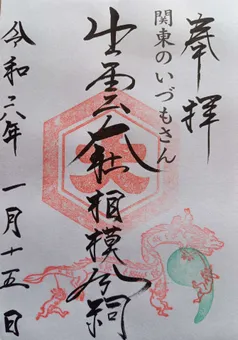 奉拝
関東のいづもさん
出雲大社相模分祠
令和六年 一月十五日